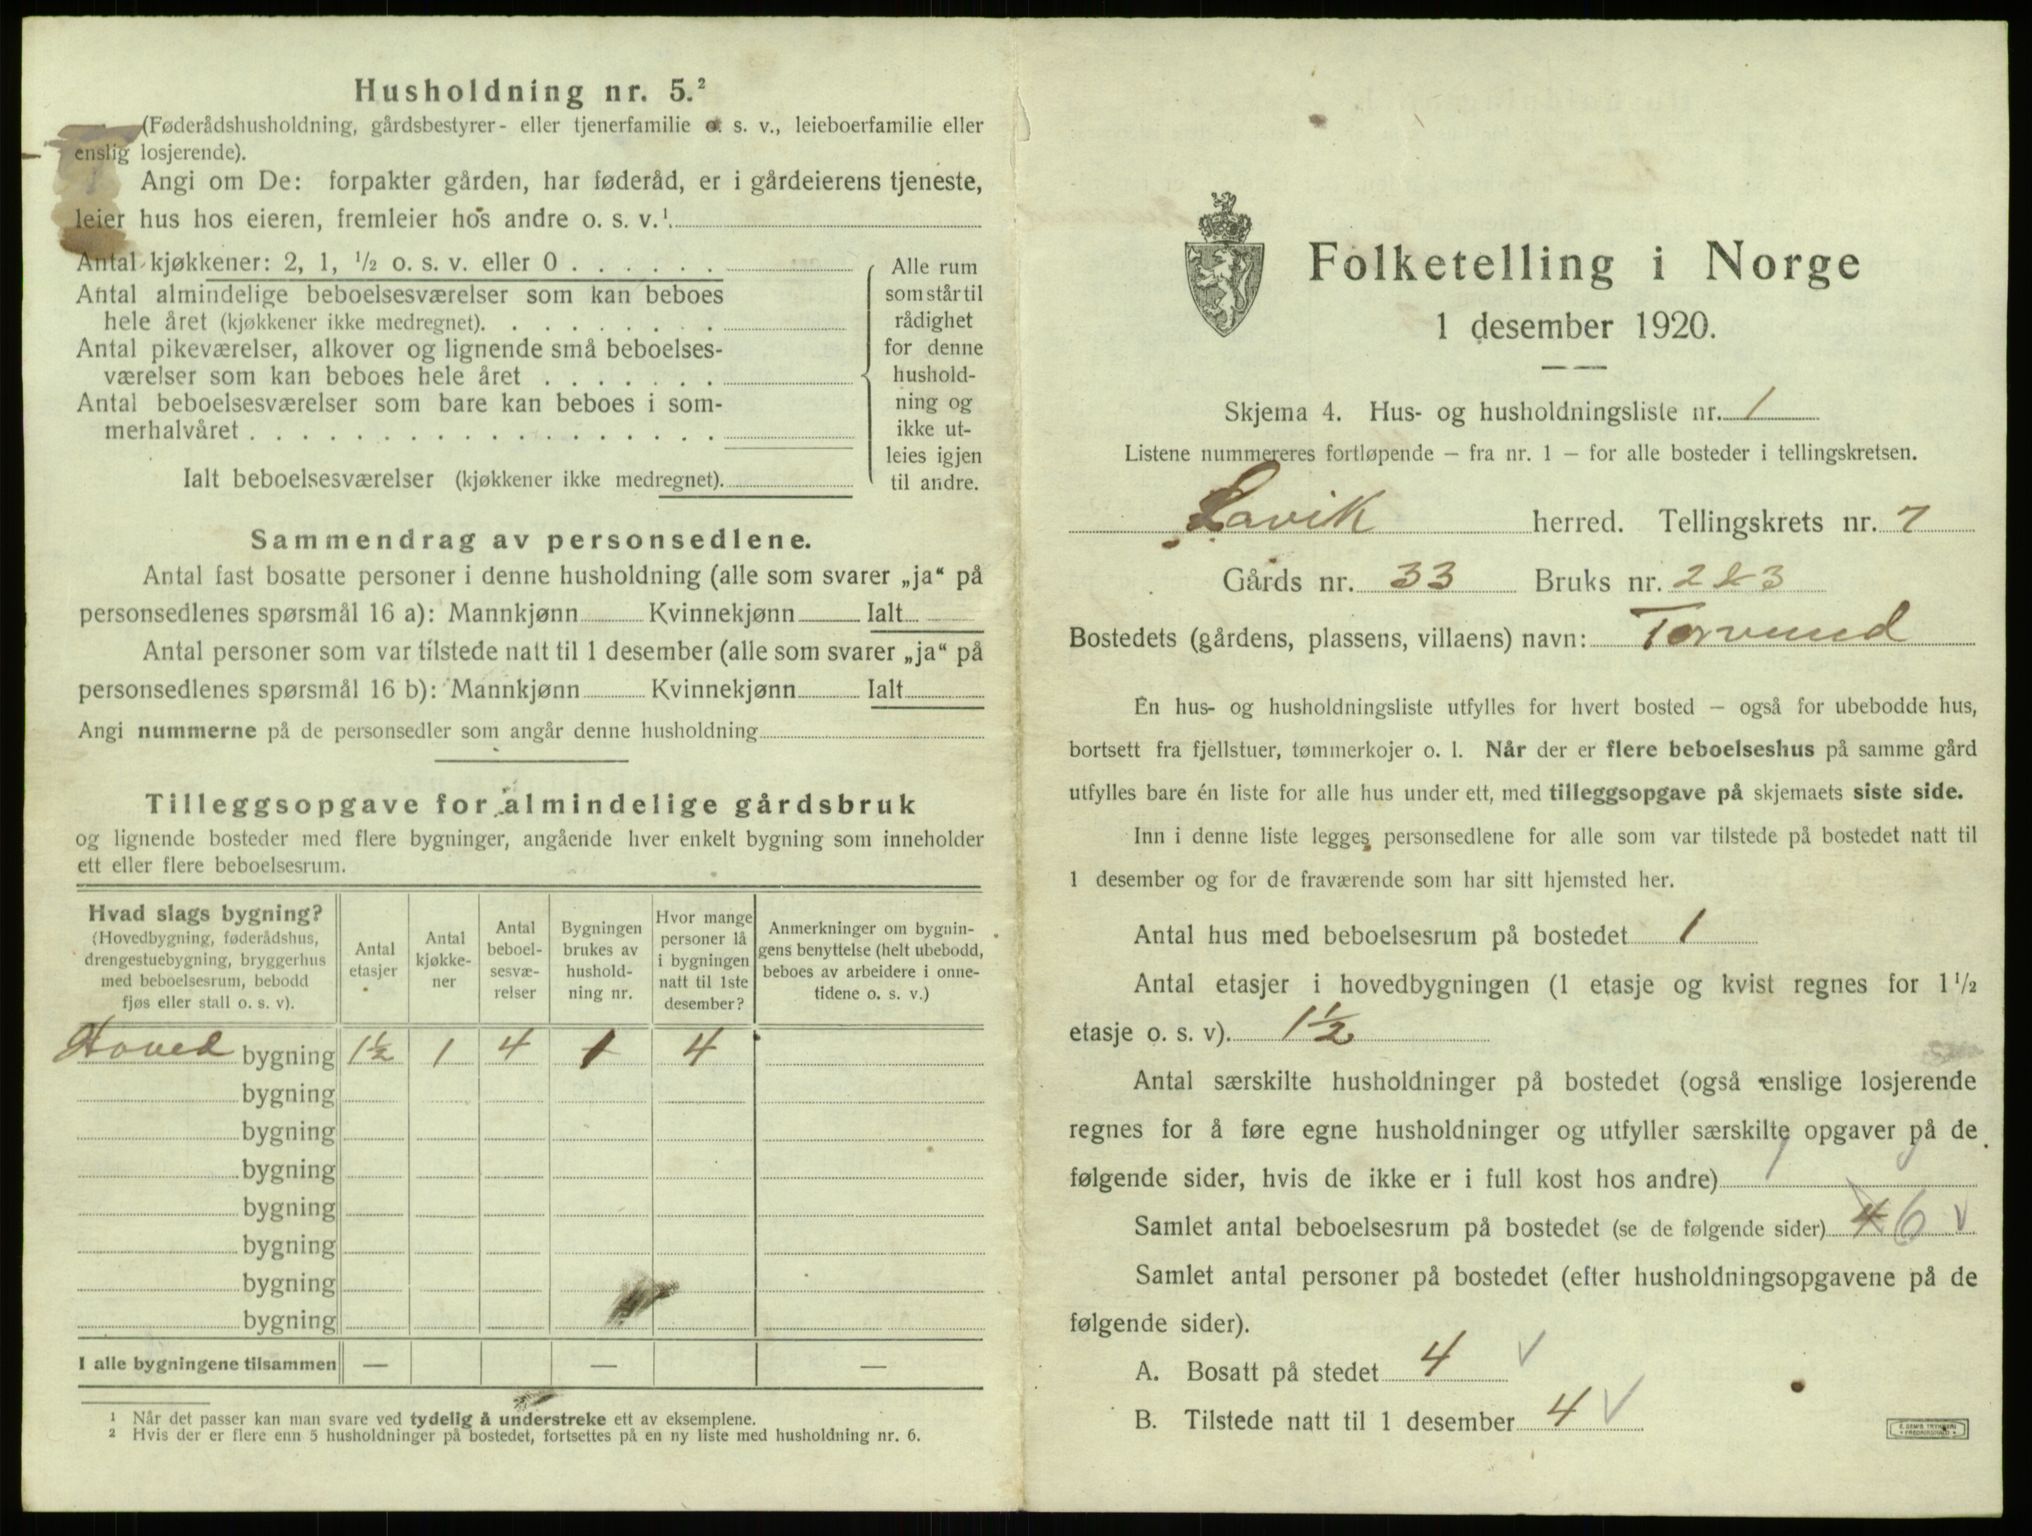 Husholdning nr. 5.²
(Føderådshusholdning, gårdsbestyrer- eller tjenerfamilie o. s. v., leieboerfamilie eller
enslig losjerende).
Angi om De: forpakter gården, har føderåd, er i gårdeierens tjeneste,
leier hus hos eieren, fremleier hos andre o. s. v.¹
Antal kjøkkener: 2, 1, ½ o. s. v. eller 0
Antal almindelige beboelsesværelser som kan beboes
hele året (kjøkkener ikke medregnet).
Antal pikeværelser, alkover og lignende små beboelses-
værelser som kan beboes hele året
Antal beboelsesværelser som bare kan beboes i som-
merhalvåret
Ialt beboelsesværelser (kjøkkener ikke medregnet).
Alle rum
som står til
rådighet
for denne
hushold-
ning og
ikke ut-
leies igjen
til andre.
Sammendrag av personsedlene.
Antal fast bosatte personer i denne husholdning (alle som svarer „ja“ på
personsedlenes spørsmål 16 a): Mannkjønn Kvinnekjønn Ialt
Antal personer som var tilstede natt til 1 desember (alle som svarer „ja“ på
personsedlenes spørsmål 16 b): Mannkjønn Kvinnekjønn Ialt
Angi nummerne på de personsedler som angår denne husholdning
Tilleggsopgave for almindelige gårdsbruk
og lignende bosteder med flere bygninger, angående hver enkelt bygning som inneholder
ett eller flere beboelsesrum.
Hvad slags bygning?
(Hovedbygning, føderådshus,
drengestuebygning, bryggerhus
med beboelsesrum, bebodd
fjøs eller stall o. s. v).
Antal
etasjer
Antal
kjøkke-
ner
Antal
beboel-
sesvæ-
relser
Bygningen
brukes av
hushold-
ning nr.
Hvor mange
personer lå
i bygningen
natt til 1ste
desember?
Anmerkninger om bygnin-
gens benyttelse (helt ubebodd,
beboes av arbeidere i onne-
tidene o. s. v.)
Hoved bygning 1½ 1 4 1 4
bygning
bygning
bygning
bygning
bygning
bygning
bygning
I alle bygningene tilsammen — — —
¹ Når det passer kan man svare ved tydelig å understreke ett av eksemplene.
² Hvis der er flere enn 5 husholdninger på bostedet, fortsettes på en ny liste med husholdning nr. 6.
Folketelling i Norge
1 desember 1920.
Skjema 4. Hus- og husholdningsliste nr. 1
Listene nummereres fortløpende – fra nr. 1 – for alle bosteder i tellingskretsen.
Lavik herred. Tellingskrets nr. 7
Gårds nr. 33 Bruks nr. 2 & 3
Bostedets (gårdens, plassens, villaens) navn: Torvund
En hus- og husholdningsliste utfylles for hvert bosted – også for ubebodde hus,
bortsett fra fjellstuer, tømmerkojer o. l. Når der er flere beboelseshus på samme gård
utfylles bare én liste for alle hus under ett, med tilleggsopgave på skjemaets siste side.
Inn i denne liste legges personsedlene for alle som var tilstede på bostedet natt til
1 desember og for de fraværende som har sitt hjemsted her.
Antal hus med beboelsesrum på bostedet 1
Antal etasjer i hovedbygningen (1 etasje og kvist regnes for 1½
etasje o. s. v). 1½
Antal særskilte husholdninger på bostedet (også enslige losjerende
regnes for å føre egne husholdninger og utfyller særskilte opgaver på de
følgende sider, hvis de ikke er i full kost hos andre) 1
Samlet antal beboelsesrum på bostedet (se de følgende sider) 4 6 √
Samlet antal personer på bostedet (efter husholdningsopgavene på de
følgende sider).
A. Bosatt på stedet 4 √
B. Tilstede natt til 1 desember 4 √